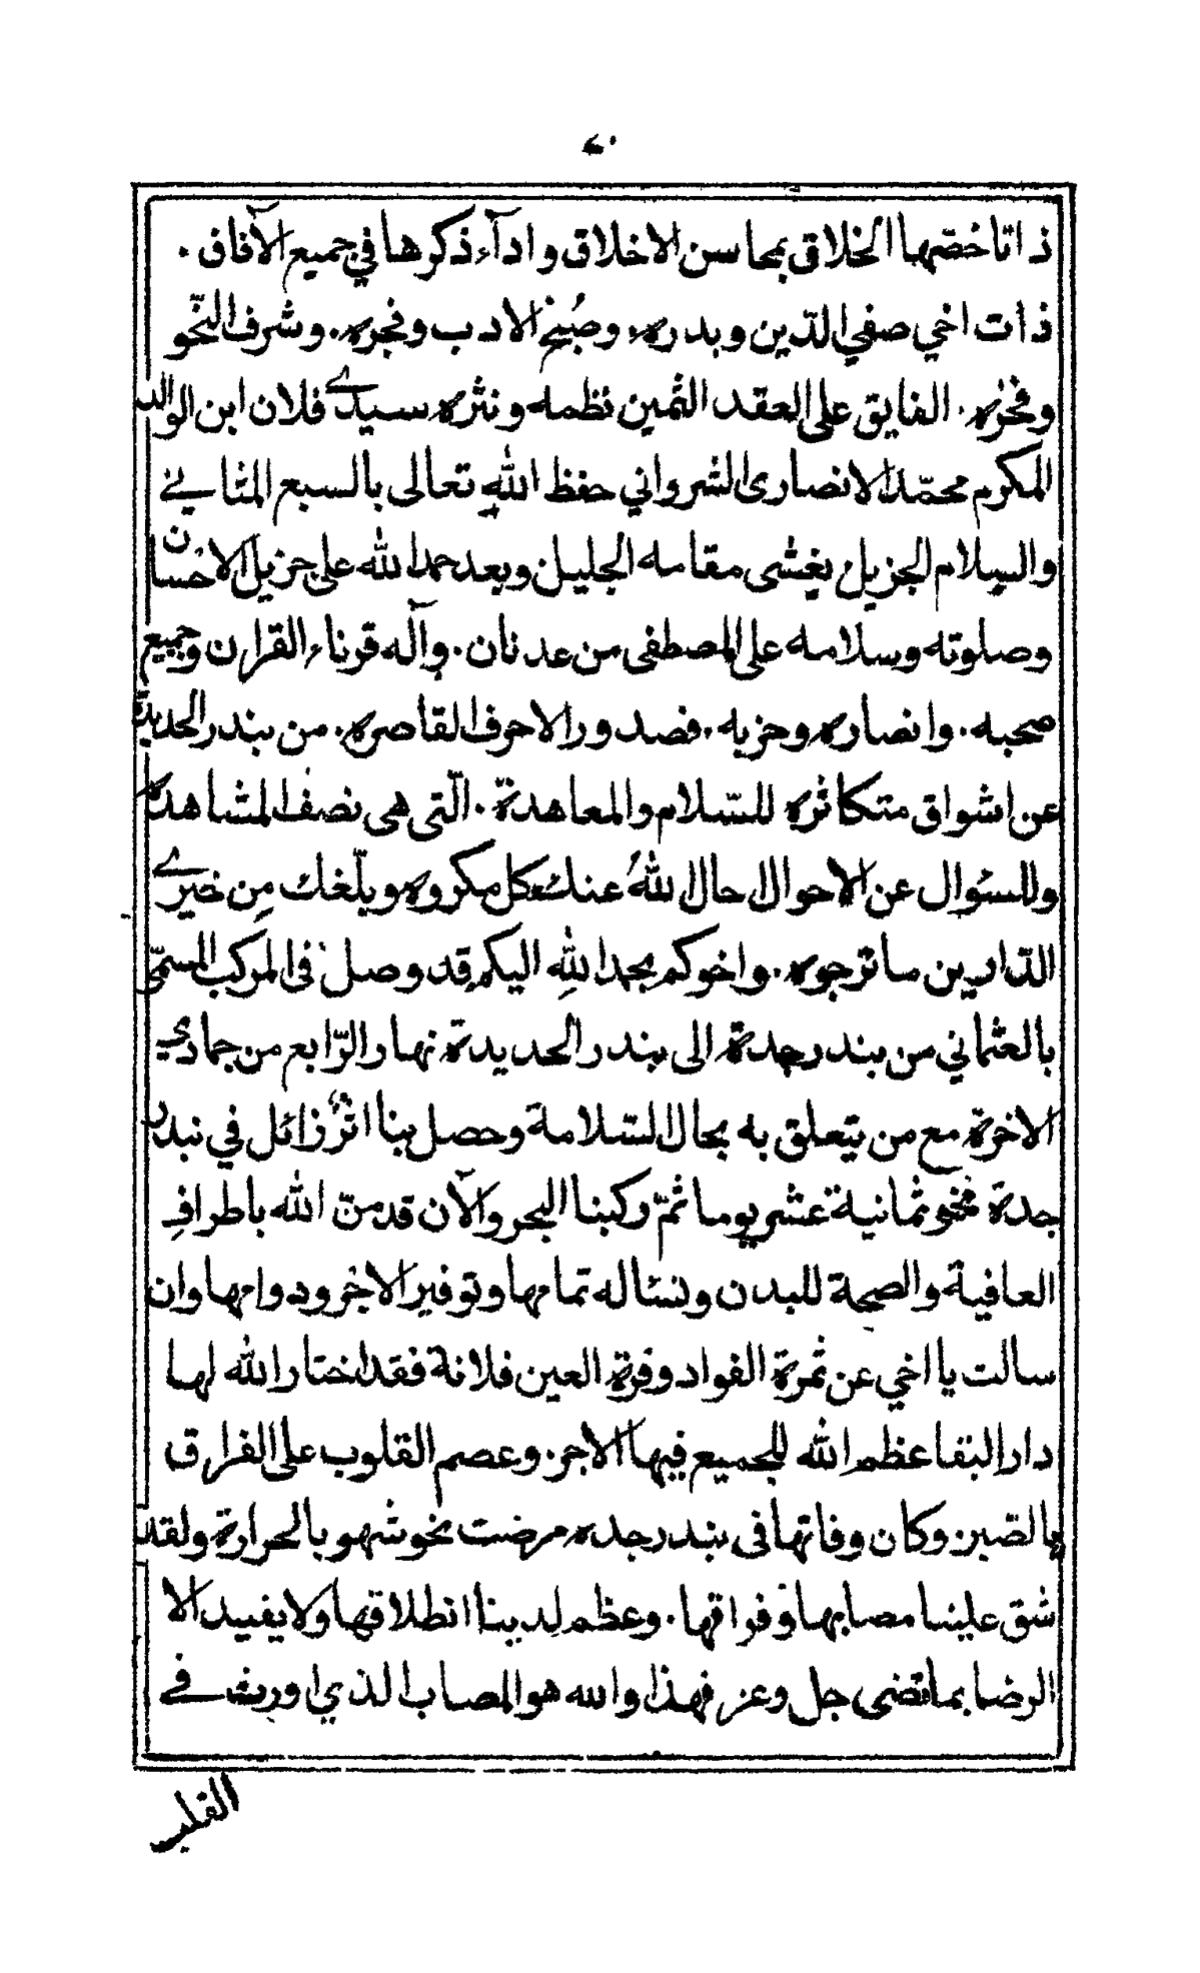 ذاتا خصّها الخلاق بمحاسن الاخلاق وادآء ذكرها في جميع الآفاق .
ذات اخي صفي الدّين وبدره، وصُبح الادب وفجره. وشرف النّحو
وفخره. الفايق على العقد الثمين نظمه ونثره سيدے فلان ابن الوالد
المكرم محمّد الانصارى الشرواني حفظ الله تعالى بالسبع المثانے
والسلام الجزيل يغشى مقامه الجليل وبعد حمد الله على جزيل الاحسان
وصلوته وسلامه على المصطفى من عدنان. وآله قرناء القرآن وجميع
صحبه. وانصاره وحزبه. فصدور الاحرف القاصره. من بندر الحديدة
عن اشواق متكاثره للسّلام والمعاهدة. الّتى هى نصف المشاهده
وللسؤال عن الاحوال احال اللهُ عنك كل مكروه وبلّغك مِن خيرے
الدّارين ما ترجوه. واخوكم بحمد اللهِ اليكم قد وصل فى المركب المسمّى
بالعثماني من بندر جدة الى بندر الحديدة نهار الرّابع من جمادي
الاخرة مع من يتعلق به بحال السّلامة وحصل بنا اثرٌ زائل في بندر
جدة نحو ثمانية عشر يوما ثمّ ركبنا البحر والآن قد منّ الله باطرافِ
العافية والصحة للبدن ونسئاله تمامها وتوفير الاجر ودوامها وان
سالت يا اخي عن ثمرة الفواد وقرة العين فلانة فقد اختار الله لها
دار البقا عظم الله للجميع فيها الاجر. وعصم القلوب على الفراق
بالصّبر وكان وفاتها فى بندر جده مرضت نحو شهر بالحرارة ولقد
شق علينا مصابها وفراقها. وعظم لدينا انطلاقها ولا يفيد الا
الرضا بما قضى جل وعز فهذا والله هو المصاب الذي اورث فے
القلب